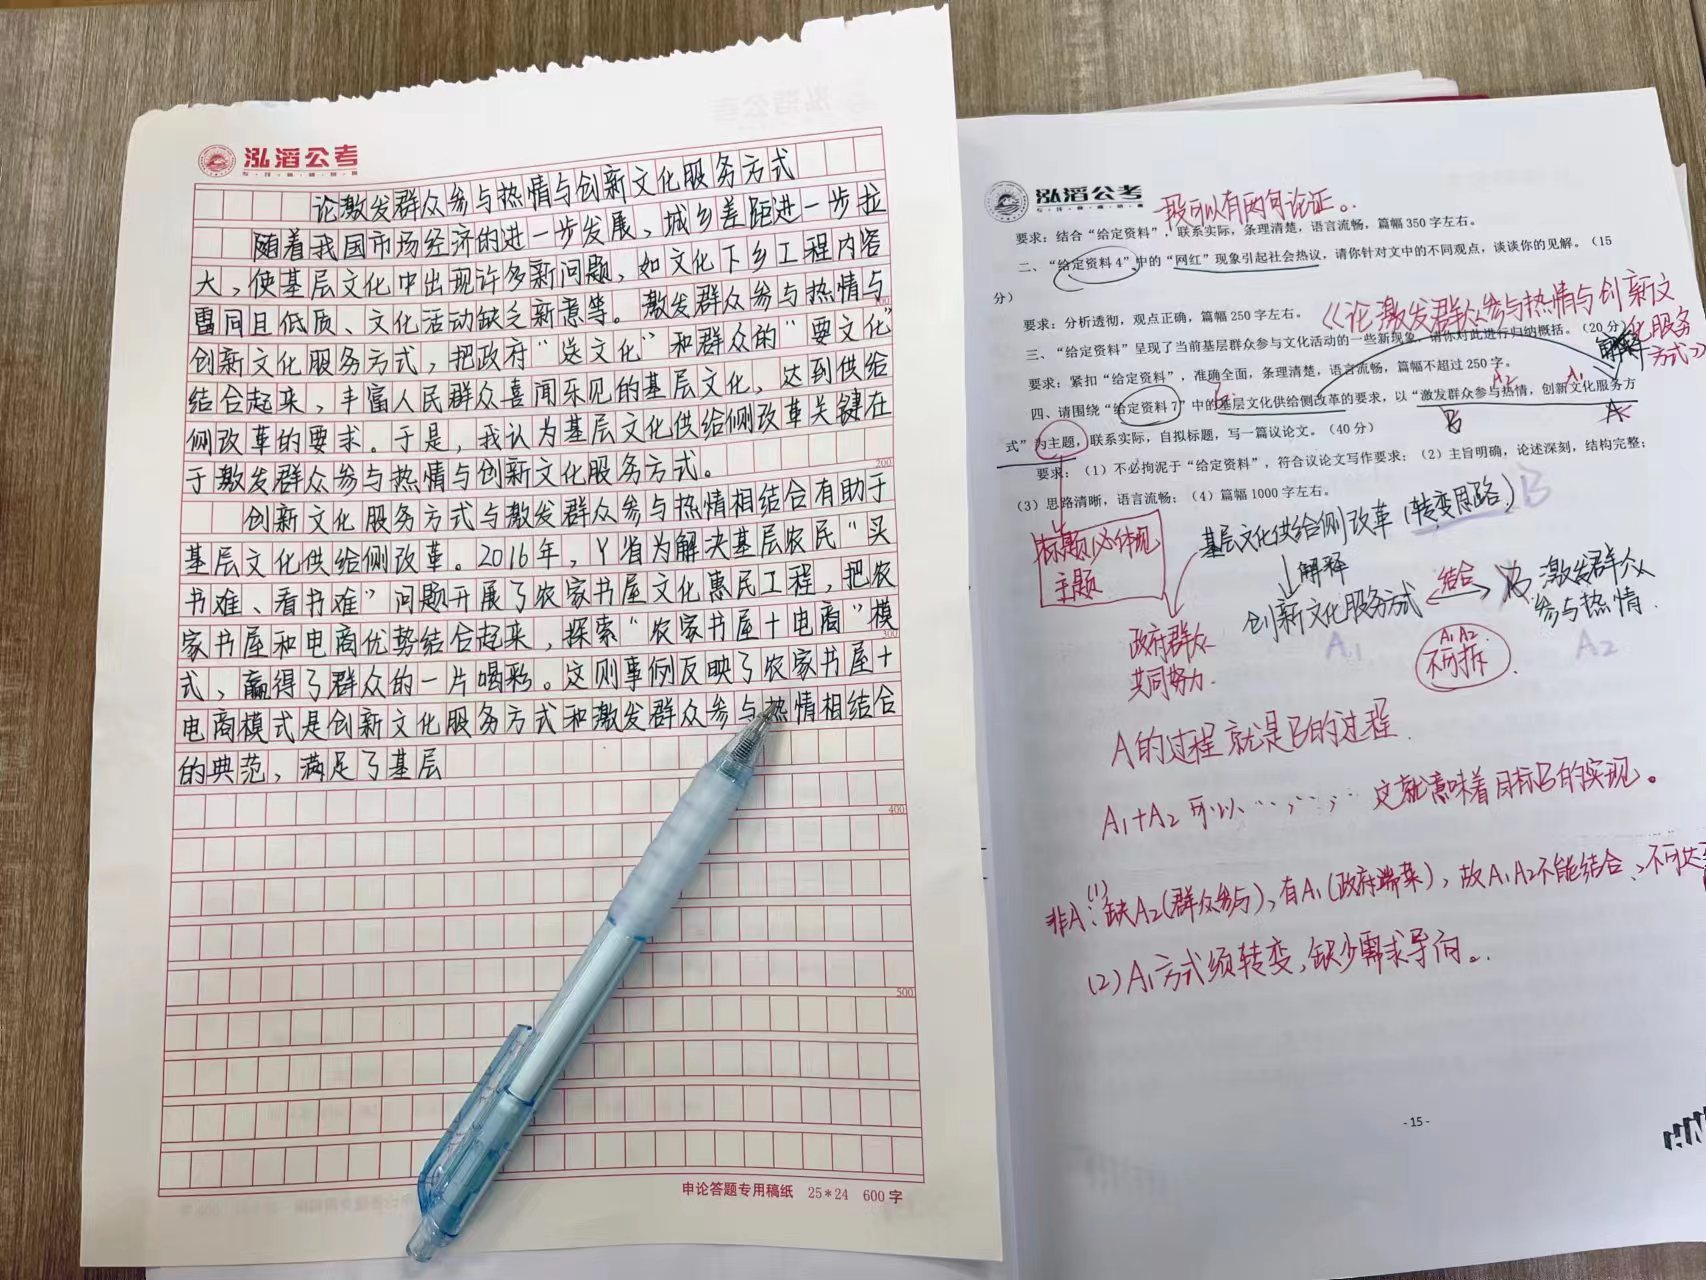 泓滔公考
论激发群众参与热情与创新文化服务方式
随着我国市场经济的进一步发展，城乡差距进一步拉
大，使基层文化中出现许多新问题，如文化下乡工程内容
雷同且低质、文化活动缺乏新意等。激发群众参与热情与
创新文化服务方式，把政府“送文化”和群众的“要文化”
结合起来，丰富人民群众喜闻乐见的基层文化，达到供给
侧改革的要求。于是，我认为基层文化供给侧改革关键在
于激发群众参与热情与创新文化服务方式。
200
创新文化服务方式与激发群众参与热情相结合有助于
基层文化供给侧改革。2016年，Y省为解决基层农民“买
书难、看书难”问题开展了农家书屋文化惠民工程，把农
家书屋和电商优势结合起来，探索“农家书屋+电商”模
300
式，赢得了群众的一片喝彩。这则事例反映了农家书屋+
电商模式是创新文化服务方式和激发群众参与热情相结合
的典范，满足了基层
400
500
申论答题专用稿纸 25*24 600字
泓滔公考
可以有两句论证。
要求：结合“给定资料”，联系实际，条理清楚，语言流畅，篇幅350字左右。
二、“给定资料4”中的“网红”现象引起社会热议，请你针对文中的不同观点，谈谈你的见解。（15
分）
要求：分析透彻，观点正确，篇幅250字左右。
《论激发群众参与热情与创新文
化服务
方式》
三、“给定资料”呈现了当前基层群众参与文化活动的一些新现象，请你对此进行归纳概括。（20分）
解释
要求：紧扣“给定资料”，准确全面，条理清楚，语言流畅，篇幅不超过250字。
A2
A1
四、请围绕“给定资料7”中的基层文化供给侧改革的要求，以“激发群众参与热情，创新文化服务方
B
式”为主题，联系实际，自拟标题，写一篇议论文。（40分）
要求：（1）不必拘泥于“给定资料”，符合议论文写作要求；（2）主旨明确，论述深刻，结构完整；
（3）思路清晰，语言流畅；（4）篇幅1000字左右。
标题必体现
主题
基层文化供给侧改革（转变思路）B
解释
创新文化服务方式
结合
激发群众
参与热情.
A1
A2
A1 A2
不可拆
政府群众
共同努力.
A的过程就是B的过程.
A1+A2可以……；……；……这就意味着目标B的实现。
非A：(1)缺A2(群众参与)，有A1(政府端菜)，故A1A2不能结合、不可达
(2)A1方式须转变，缺少需求导向。
- 15 -